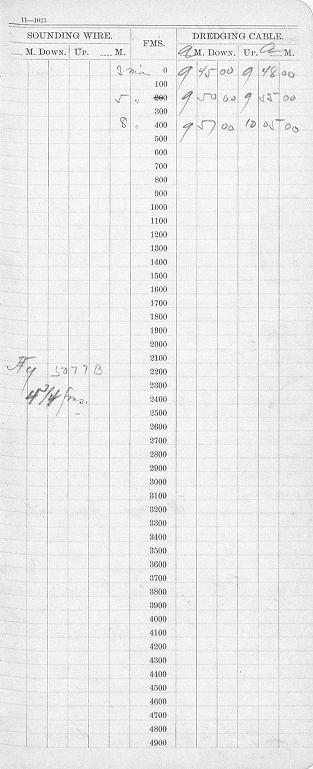 11—1023
SOUNDING WIRE. FMS. DREDGING CABLE.
M. DOWN. UP. M. a M. DOWN. UP. a M.
3 min 0 9 45 00 9 48 00
100
5 " 200 9 50 00 9 55 00
300
8 " 400 9 57 00 10 05 00
500
600
700
800
900
1000
1100
1200
1300
1400
1500
1600
1700
1800
1900
2000
2100
Hy 5077B 2200
2300
4 3/4 fms. 2400
2500
2600
2700
2800
2900
3000
3100
3200
3300
3400
3500
3600
3700
3800
3900
4000
4100
4200
4300
4400
4500
4600
4700
4800
4900